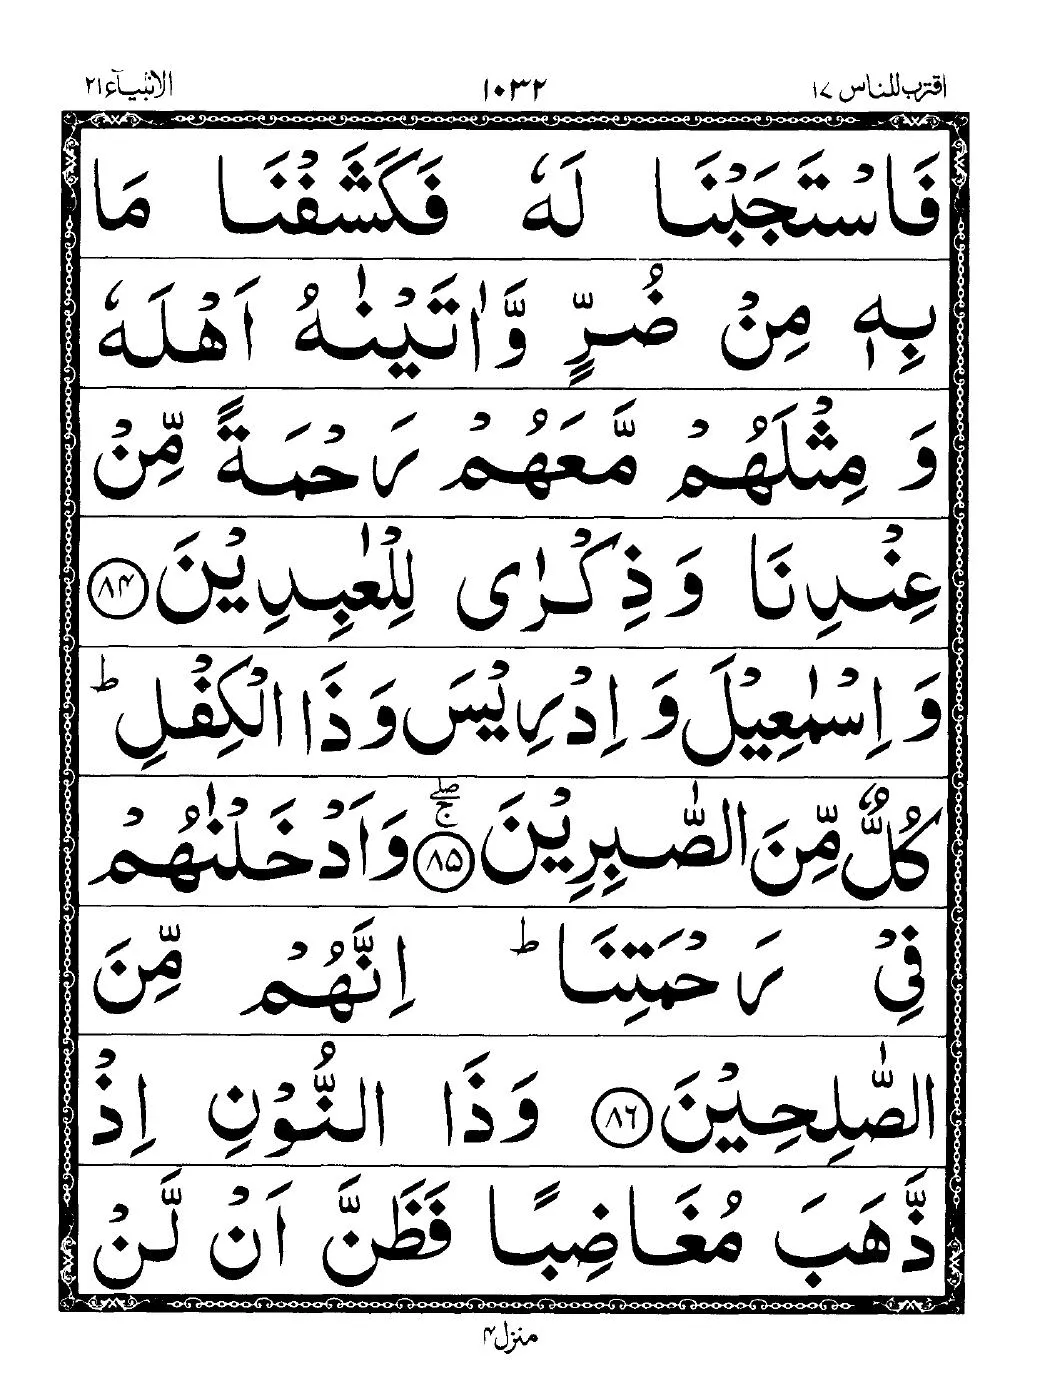 اقترب للناس ١٧ ١٠٣٢ الانبیآء ٢١
فَاسْتَجَبْنَا لَهٗ فَكَشَفْنَا مَا
بِهٖ مِنْ ضُرٍّ وَّاٰتَيْنٰهُ اَهْلَهٗ
وَ مِثْلَهُمْ مَّعَهُمْ رَحْمَةً مِّنْ
عِنْدِنَا وَ ذِكْرٰى لِلْعٰبِدِيْنَ ۸۴
وَ اِسْمٰعِيْلَ وَ اِدْرِيْسَ وَ ذَا الْكِفْلِ ؕ
كُلٌّ مِّنَ الصّٰبِرِيْنَ ۸۵ ۚۖ وَ اَدْخَلْنٰهُمْ
فِيْ رَحْمَتِنَا ؕ اِنَّهُمْ مِّنَ
الصّٰلِحِيْنَ ۸۶ وَ ذَا النُّوْنِ اِذْ
ذَّهَبَ مُغَاضِبًا فَظَنَّ اَنْ لَّنْ
منزل ۴